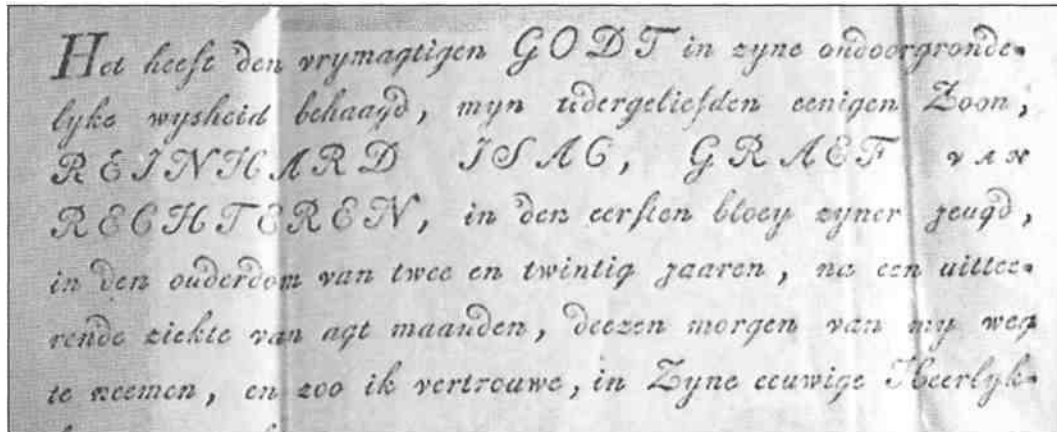 Het heeft den vrymagtigen GODT in zyne ondoorgronde-
lyke wysheid behaagd, myn udergeliefden eenigen Zoon,
REINHARD ISAC, GRAEF VAN
RECHTEREN, in den eersten bloey zyner jeugd,
in den ouderdom van twee en twintig jaaren, na een uittee-
rende ziekte van agt maanden, deezen morgen van my weg
te neemen, en zoo ik vertrouwe, in Zyne eeuwige Heerlyk-